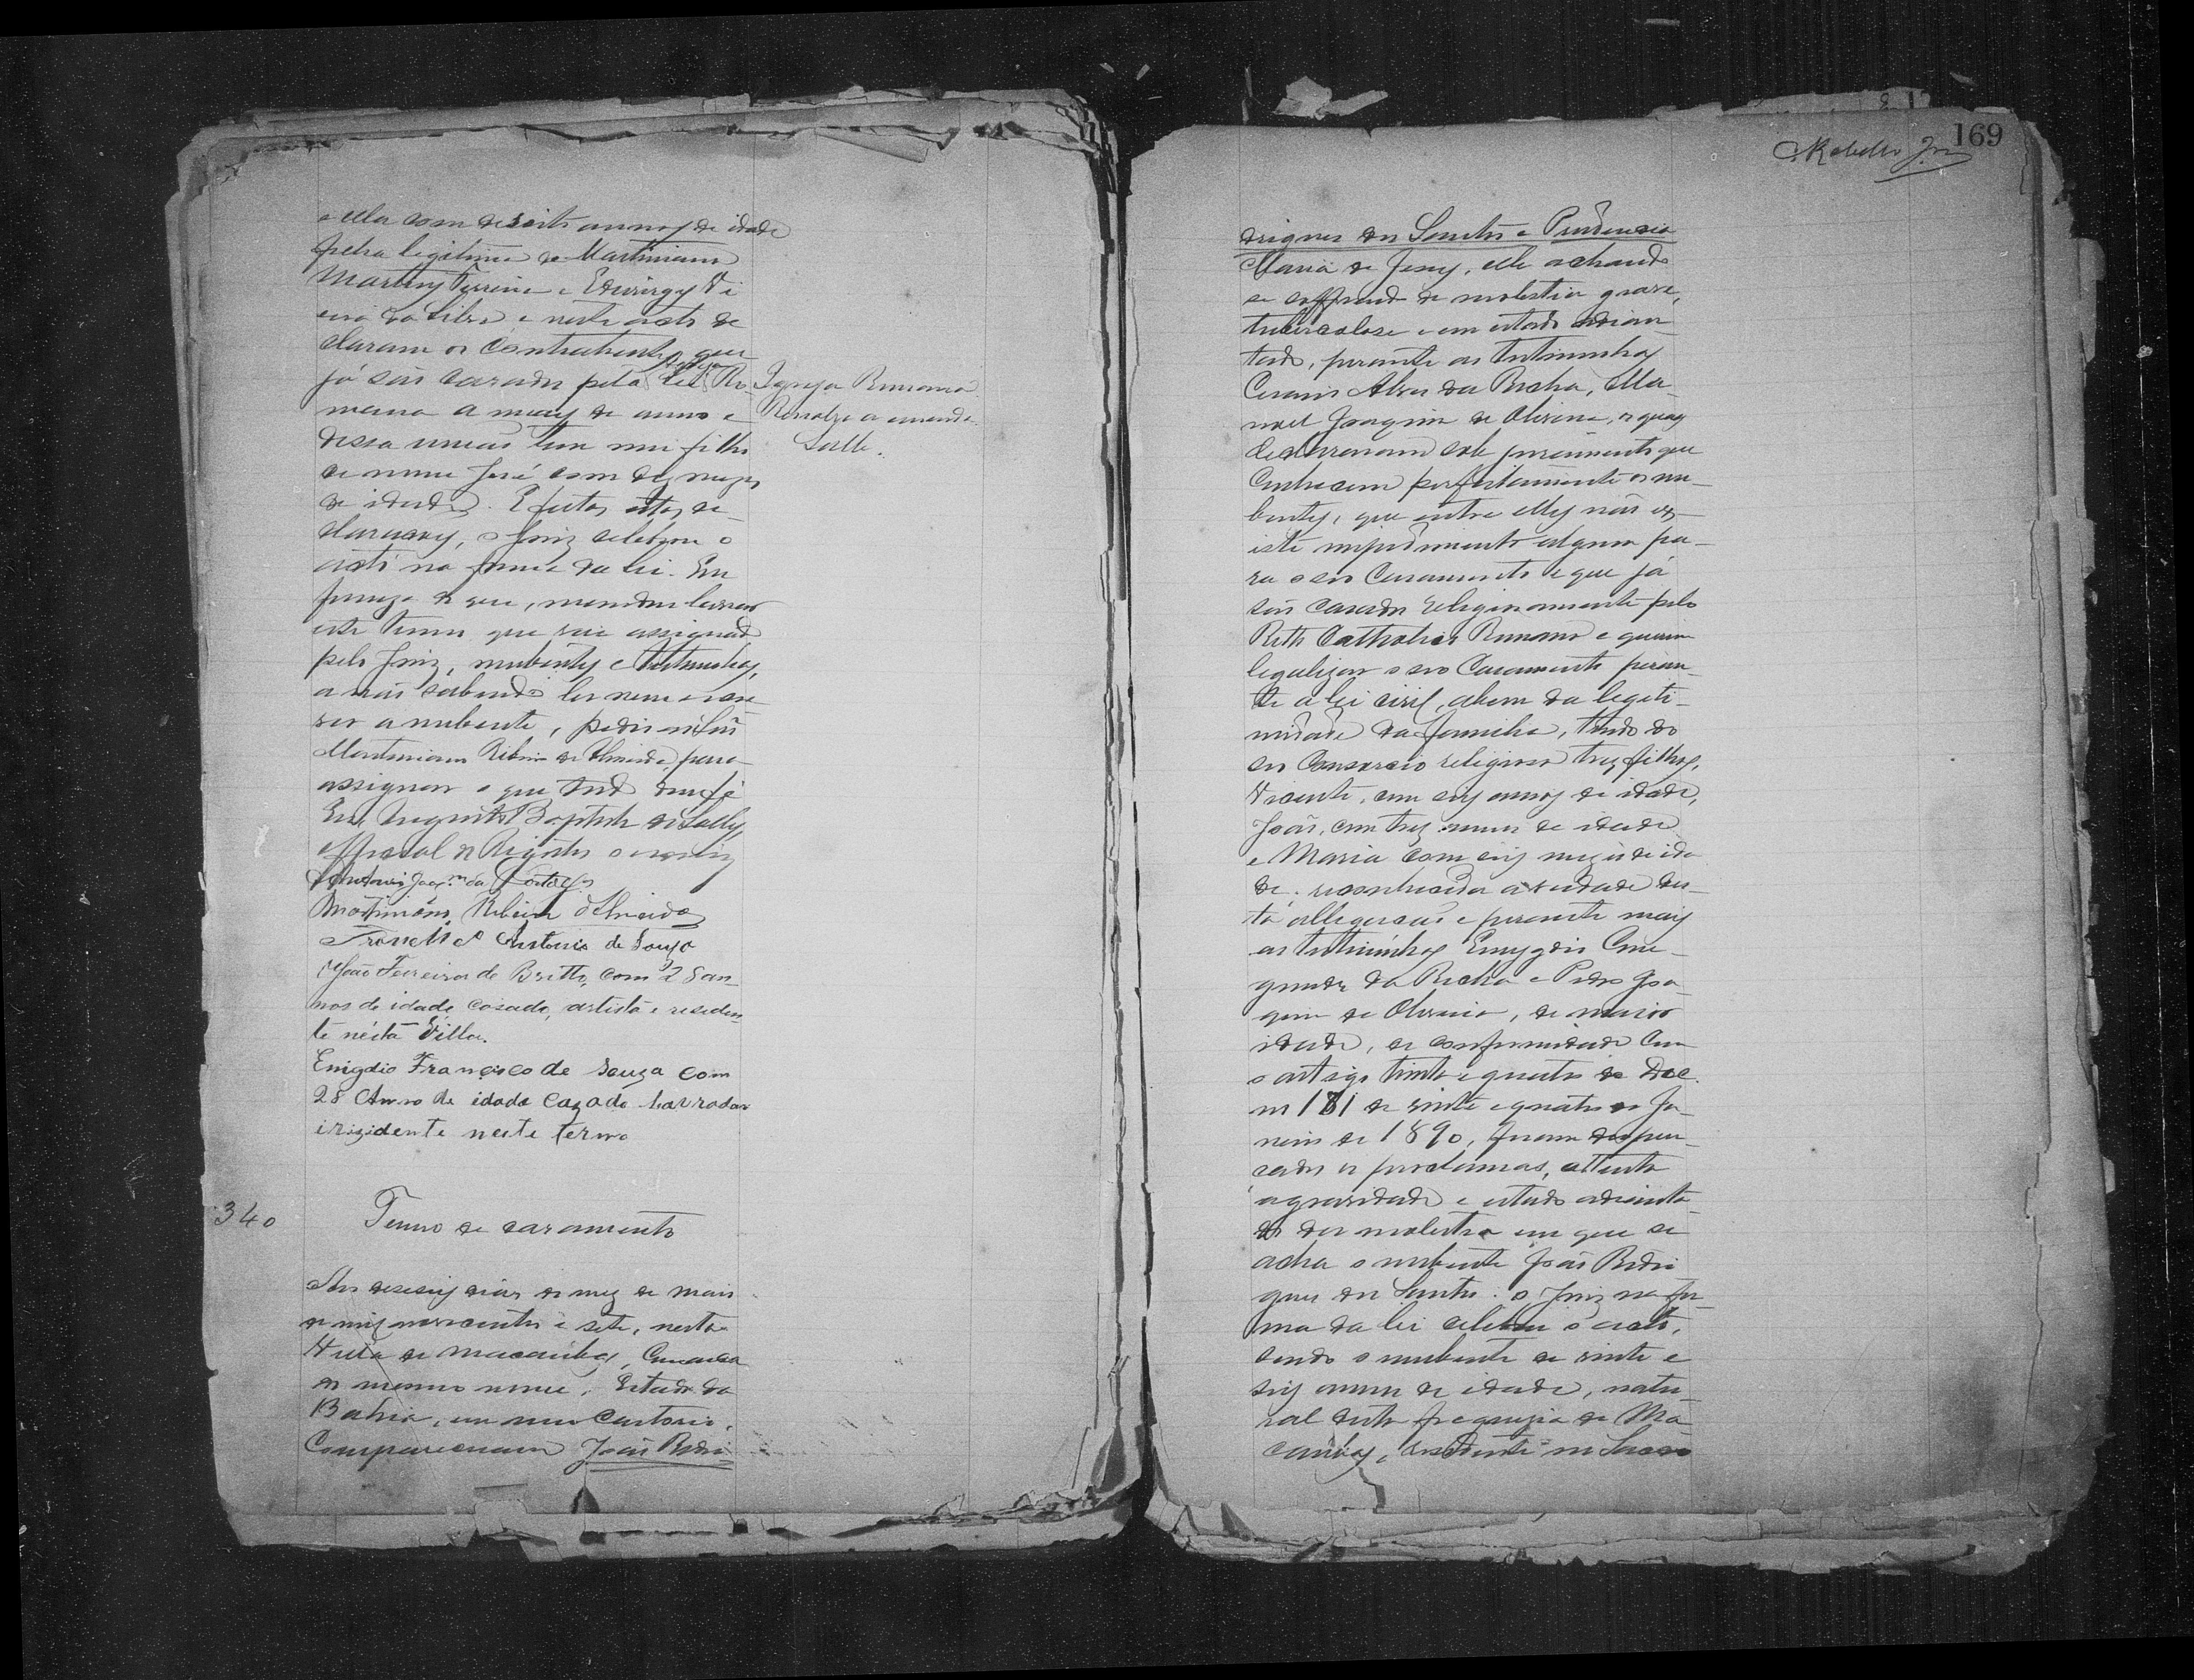 e ella com desoito annos de idade
filha legitima de Martiniano
Martins Ferreira e Eduvirgs Vi
eira da Silva e neste acto de
claram os Contrahentes que
já são casados pela Igreja Ro
mana a mais de anno e
dessa união tem um filho
de nome José com dez mezes
de idade. E feitas estas de
clarações, o Juiz celebrou o
acto na forma da lei. Em
firmeza do que, mandou lavrar
este termo que vai assignado
pelo Juiz, nubentes e testemunhas,
e não sabendo ler nem escre
ver a nubente, pedio
Martiniano Ribeiro de Almeida, para
assignar o que tudo dou fé
Eu Augusto Baptista de Salles,
official de Registro o escrevi
Antonio Joaqm da
Martiniano Ribeiro d'Almeida
Antonio de Souza
João Ferreira de Britto, com 28 an
nos de idade, casado, artista e residen
te nésta Villa.
Emigdio Francisco de Souza com
28 Anno de idade Cazado lavrador
irizidente neste termo
Igreja Romana
Resalvo a emenda.
Salles.
340
Termo de casamento
Aos deseseis dias do mez de maio
de mil novecentos e sete, nesta
Villa de Macaubas, Comarca
do mesmo nome, Estado da
Bahia, em meu Cartorio,
Compareceram João Rodri
169
Rabello Jor
drigues dos Santos e Prudencia
Maria de Jesus, elle achando
se soffrendo de molestia grave,
tuberculose e em estado adian
tado, perante as testemunhas
Cesario Alves da Rocha, Ma
noel Joaquim de Oliveira, os quaes
declararam sob juramento que
Conhecem perfeitamente os nu
bentes, que entre elles não ex
iste impedimento algum pa
ra o seo Casamento e que já
são casados religiosamente pelo
Ritto Catholico Romano e querem
legalizar o seo Casamento peran
te a lei civil, abem da legiti
midade da familia, tendo do
seo Consorcio religioso trez filhos,
Vicente, com seis annos de idade,
João, com trez annos de idade
e Maria com seis mezes de ida
de. reconhecida a verdade des
ta allegação e perante mais
as testemunhas Emygdio Cone
gundes da Rocha e Pedro Joa
quim de Oliveira, de maior
idade, de conformidade Com
o artigo trinta e quatro do Dec.
no 181 de vinte e quatro de Ja
neiro de 1890, foram dispen
sados os proclamas, attento
a gravidade e estado adianta
do da molestia em que se
acha o nubente João Rodri
gues dos Santos. o Juiz na for
ma da lei celebrou o acto,
sendo o nubente de vinte e
seis annos de idade, natu
ral desta freguezia de Ma
caubas, residente no